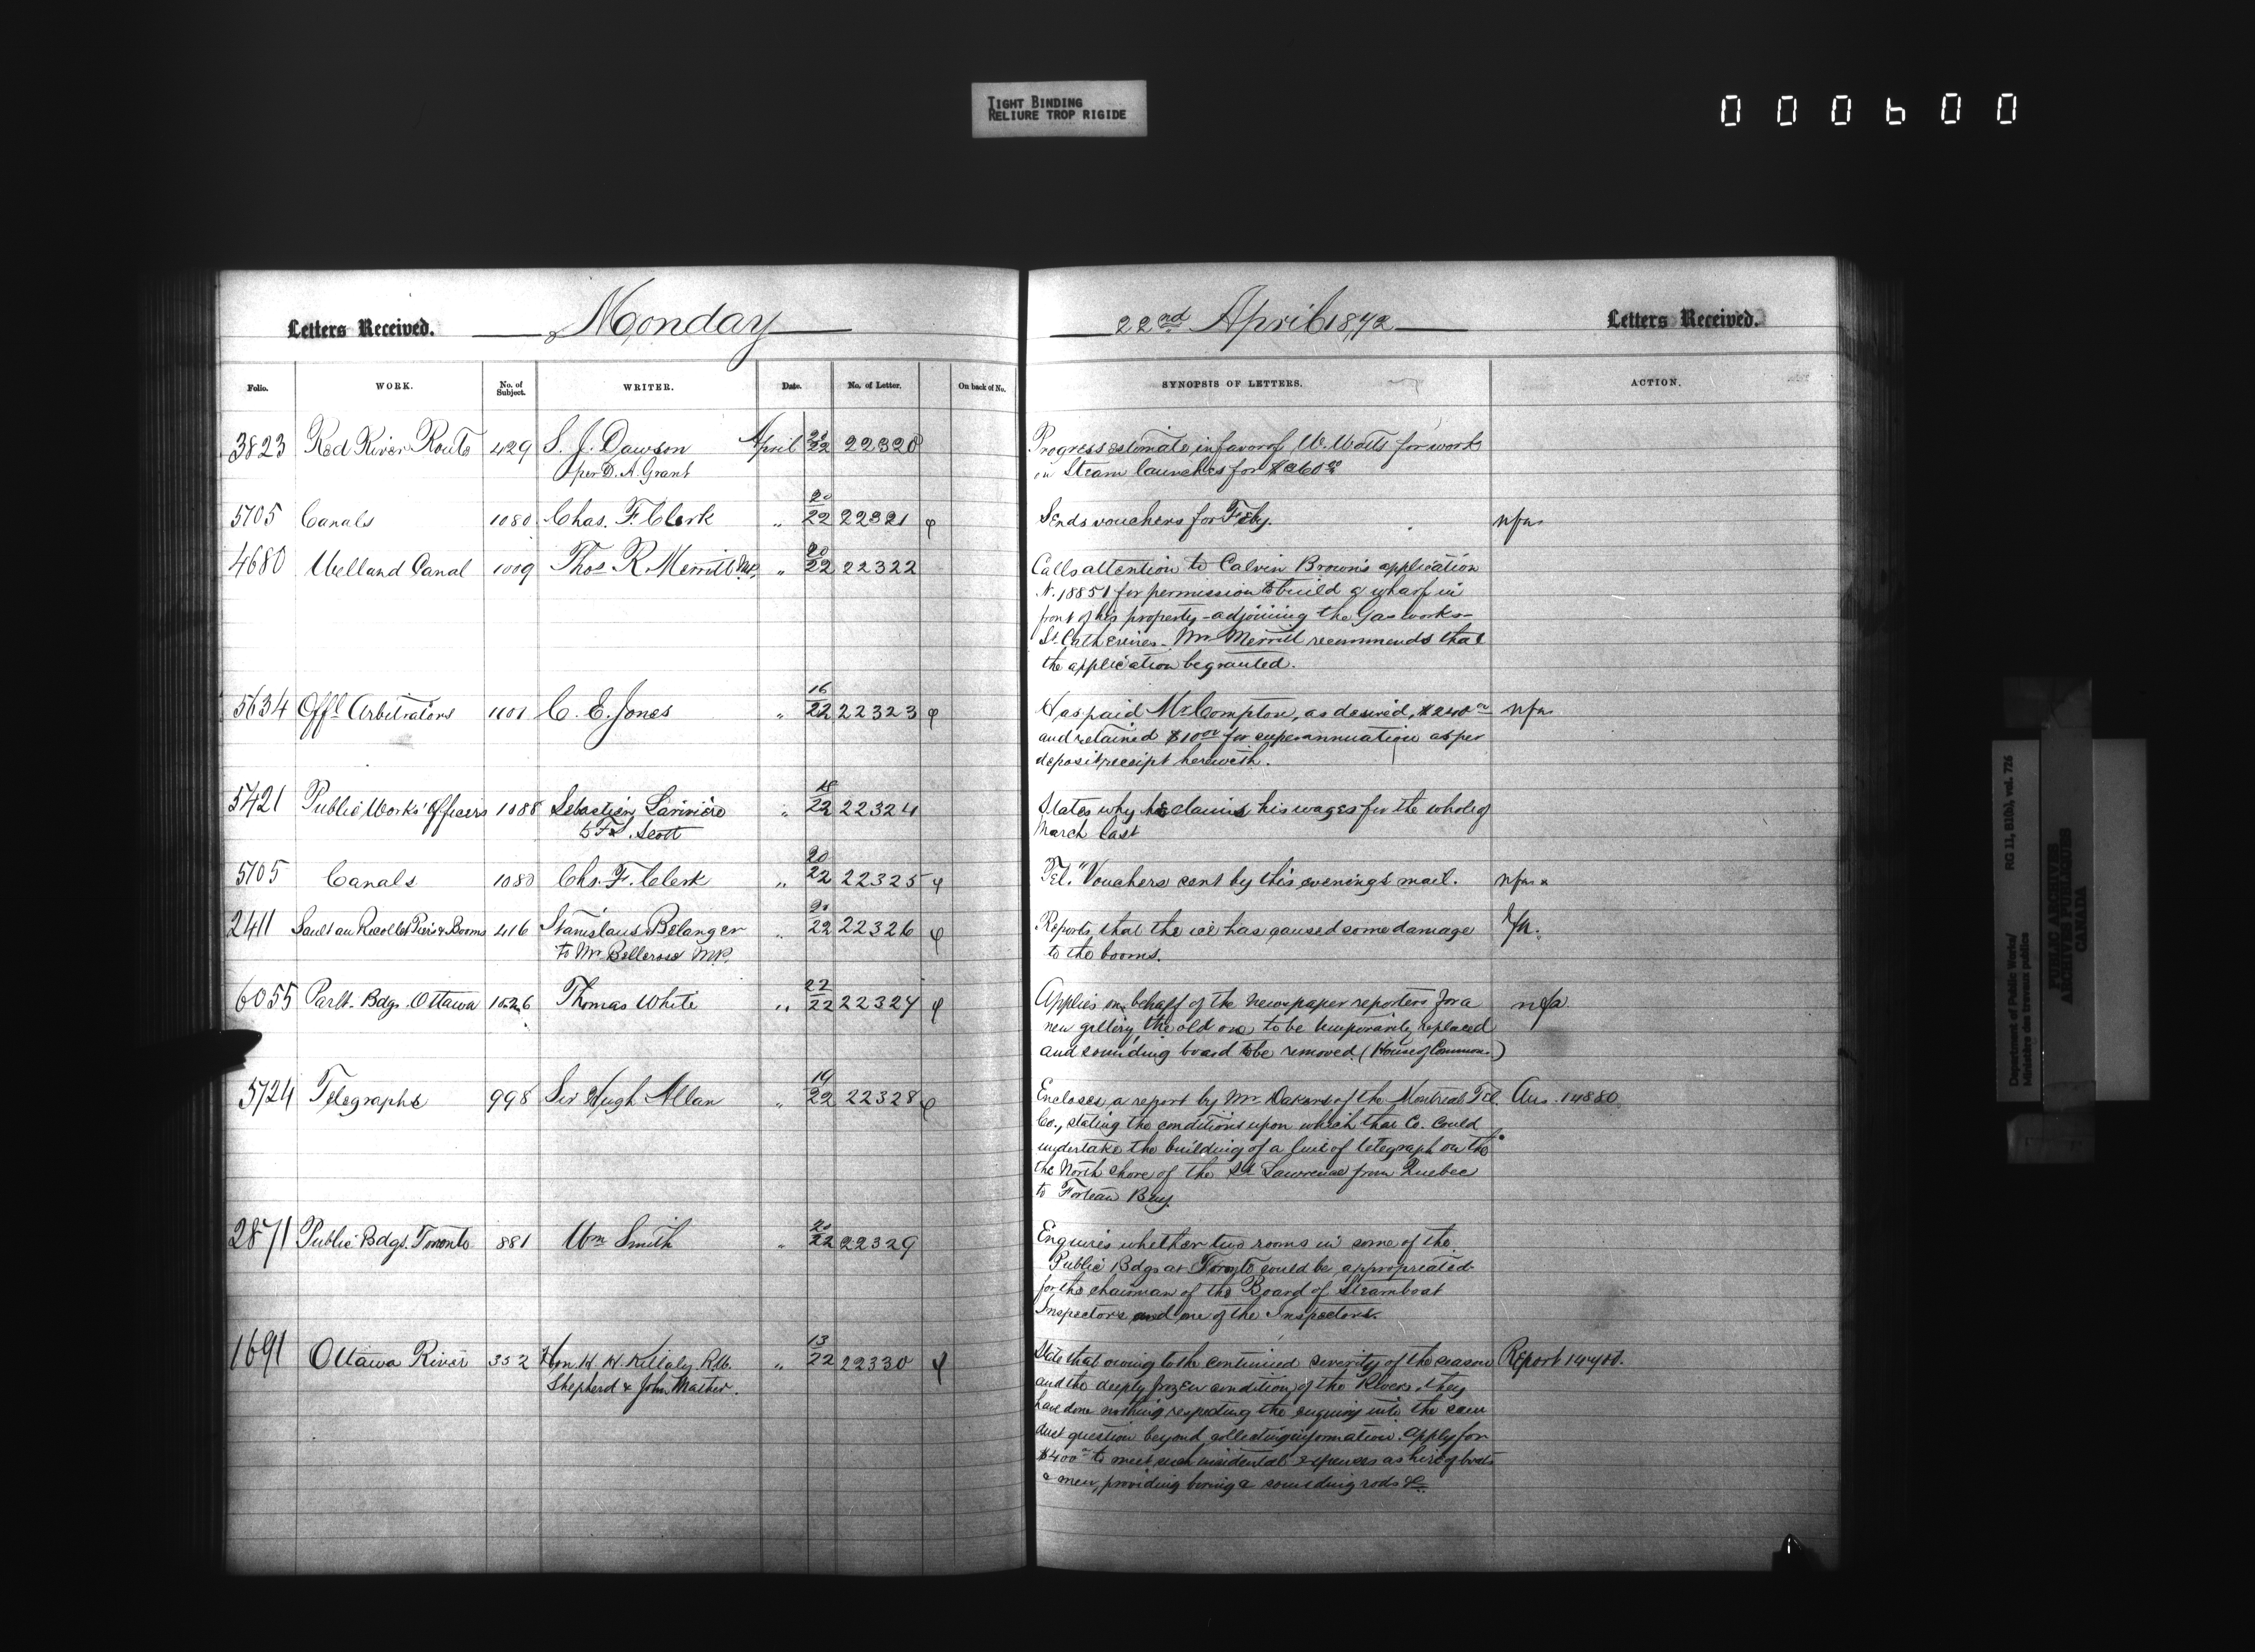 TIGHT BINDING
RELIURE TROP RIGIDE
000600
Letters Received. Monday
22nd April 1872 Letters Received.
Folio. WORK. No. of Subject. WRITER. Date. No. of Letter. On back of No.
SYNOPSIS OF LETTERS. ACTION.
3823 Red River Route 429 S. J. Dawson April 22 22320
per D. A. Grant
Progress estimate in favor of W. Watts for work
on Steam launches for
5705 Canals 1080 Chas. F. Clerk " 20/22 22321 φ
Sends vouchers for Feby. nfa
4680 Welland Canal 1009 Thos R. Merritt M.P. " 20/22 22322
Calls attention to Calvin Brown's application
N. 18851 for permission to build a wharf in
front of his property - adjoining the Gas works -
St. Catherines. Mr. Merritt recommends that
the application be granted.
5634 Offl. Arbitrators 1101 C. E. Jones " 16/22 22323 φ
Has paid Mr Compton, as desired, nfa
and retained for superannuation as per
deposit receipt herewith.
5421 Public Works Officers 1088 Sebastien Lariviere " 18/22 22324
to Scott
States why he claims his wages for the whole of
March last
5705 Canals 1080 Chs. F. Clerk " 20/22 22325 φ
Tel. "Vouchers sent by this evening's mail. nfa
2411 Sault au Recollet Piers & Booms 416 Stanislaus Belanger " 20/22 22326 φ
to Mr Bellerose M.P.
Reports that the ice has caused some damage nfa.
to the booms.
6055 Parlt. Bdgs. Ottawa 1026 Thomas White " 22/22 22327 φ
Applies on behalf of the newspaper reporters for a nfa
new gallery, the old one to be temporarily replaced
and sounding board to be removed. (House of Commons)
5724 Telegraphs 998 Sir Hugh Allan " 19/22 22328 φ
Encloses a report by Mr. Dakers of the Montreal Tel. Ans. 14880
Co., stating the conditions upon which that Co. could
undertake the building of a line of telegraph on the
the North shore of the St Lawrence from Quebec
to Forteau Bay.
2871 Public Bdgs. Toronto 881 Wm Smith " 20/22 22329
Enquires whether two rooms in some of the
Public Bdgs at Toronto could be appropriated
for the chairman of the Board of Steamboat
Inspectors and one of the Inspectors.
1691 Ottawa River 352 Hon. H. H. Killaly, R.W. " 13/22 22330 φ
Shepherd & John Mather.
State that owing to the continued severity of the season Report
and the deeply frozen condition of the River, they
have done nothing respecting the enquiry into the saw
dust question beyond collecting information. Apply for
$400 to meet such incidental expenses as hire of boats
& men, providing boring & sounding rods &c.
Department of Public Works/
Ministère des travaux publics
RG 11, B1(b), vol. 726
PUBLIC ARCHIVES
ARCHIVES PUBLIQUES
CANADA